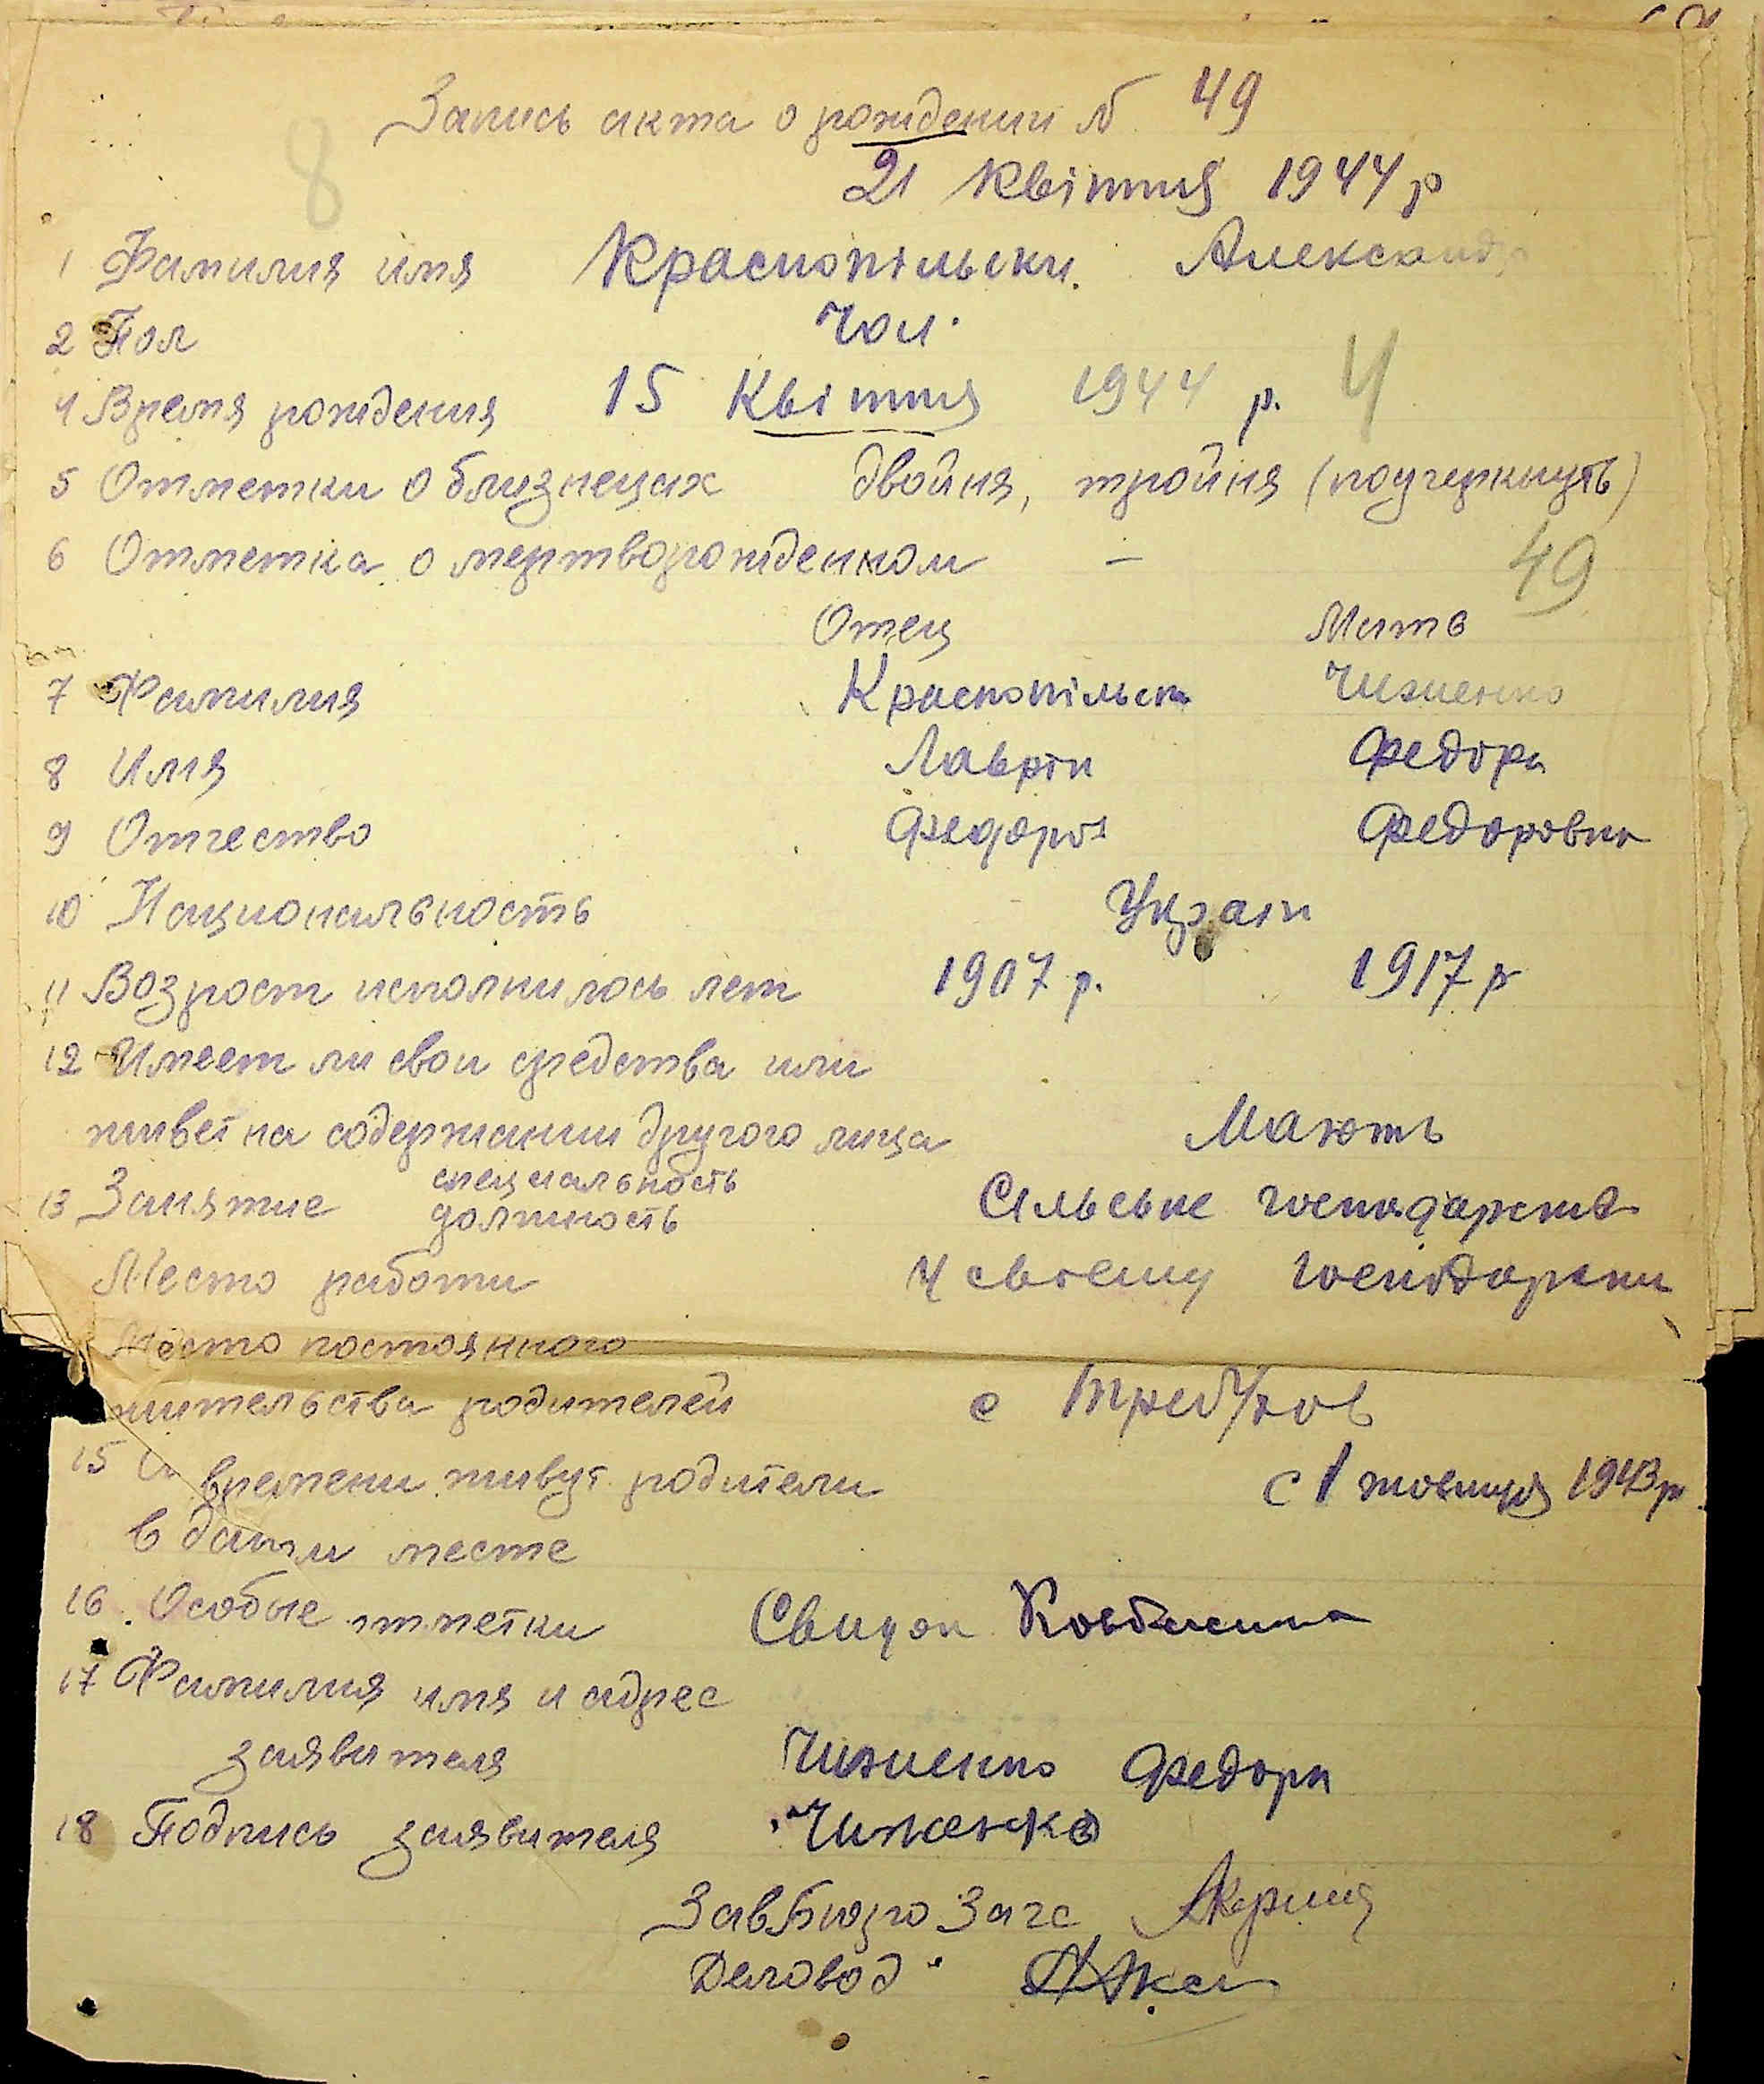 Запись акта о рождении № 49
8
21 квітня 1944 р
1 Фамилия имя Краснопільськи. Александр
2 Пол Чол.
4 Время рождения 15 Квітня 1944 р. 4
5 Отметки о близнецах двойня, тройня (подчеркнуть)
6 Отметка о мертворожденном —
49
Отец Мать
7 Фамилия Краснопільськ Чиженко
8 Имя Лаврін Федора
9 Отчество Федоров Федоровна
10 Национальность Україн
11 Возрост исполнилось лет 1907 р. 1917 р
12 Имеет ли свои средства или
живет на содержании другого лица Мають
13 Занятие специальность Сільське господарство
должность
Место работи У своєму господарств
Место постоянного
жительства родителей с Требухов
15 С времени живут родители с 1 жовтня 1943 р.
в даном месте
16. Особые отметки Свидок
17 Фамилия имя и адрес
заявителя Чиженко Федора
18 Подпись заявителя Чиженко
ЗавБюро Загс
Деловод